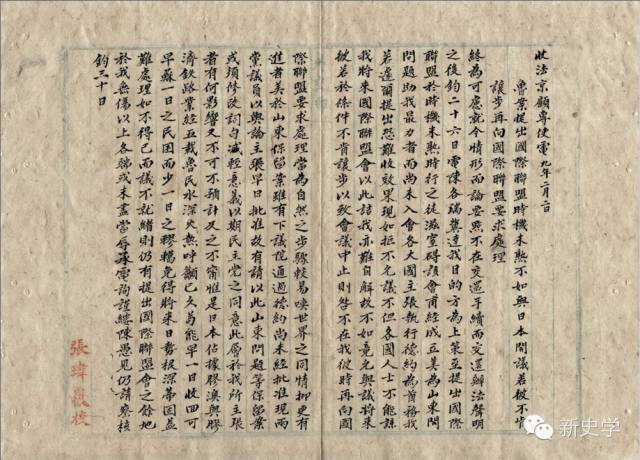 收法京顧專使電九年二月二日
魯案提出國際聯盟時機未熟不如與日本開議若彼不肯
讓步再向國際聯盟要求處理
終為可慮就令情形而論要點不在交還手續而交還辦法聲明
之後鈞二十六日電陳各端冀達我目的方為上策至提出國際
聯盟於時機未熟時行之徒滋窒礙該會甫經成立美為山東問
題助我最力者而尚未入會各大國主張執行德約為前務我
若遽爾提出恐難收效果現如拒不允議不但各國人士不能諒
我將來國際聯盟會以此詰我亦難自解故不如竟允與議將來
彼若於條件不肯讓步以致會議中止則咎不在我彼時再向國
際聯盟要求處理當為自然之步驟較易喚世界之同情抑更有
進者美於山東保留案雖有下議院通過德約尚未經批准現兩
黨議員以輿論主張早日批准故有請以此山東問題等保留案
或須修改詞句減輕意義以期民主黨之同意此層於我所主張
者有何影響又不可不預計及之不甯惟是日本佔據膠澳與膠
濟鐵路業經五載魯民水深火熱呼籲已久苟能早一日收回可
早蘇一日之民困而少一日之轇轕免得將來日勢根深蒂固益
難處理如不得已而議不就緒則仍有提出國際聯盟會之餘地
於我無傷以上各節或未盡當辱承電詢謹縷陳愚見仍請察核
鈞三十日
張瑋覆校
新史学